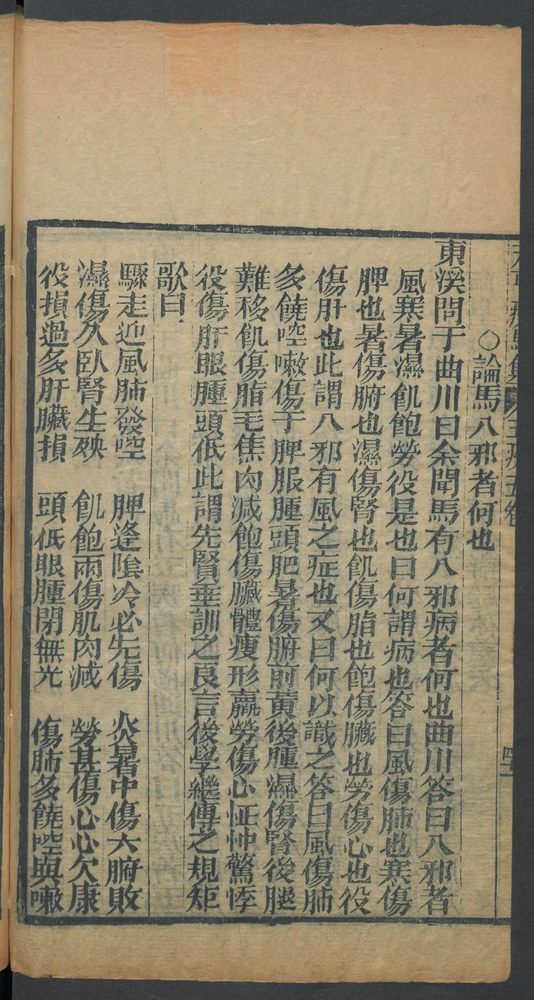 ○論馬八邪者何也
東溪問于曲川曰余聞馬有八邪病者何也曲川答曰八邪者
風寒暑濕飢飽勞役是也曰何謂病也答曰風傷肺也寒傷
脾也暑傷腑也濕傷腎也飢傷脂也飽傷臟也勞傷心也役
傷肝也此謂八邪有風之症也又曰何以識之答曰風傷肺
多饒啌嗽傷于脾脹腫頭肥暑傷腑前黄後腫濕傷腎後腿
難移飢傷脂毛焦肉減飽傷臟體瘦形羸勞傷心怔忡驚悸
役傷肝眼腫頭低此謂先賢垂訓之良言後學繼傳之規矩
歌曰
驟走迎風肺發啌　脾逢陰冷必先傷　炎暑中傷六腑敗
濕傷久卧腎生殃　飢飽兩傷肌肉減　勞甚傷心心欠康
役損過多肝臟損　頭低眼腫閉無光　傷肺多饒啌與嗽